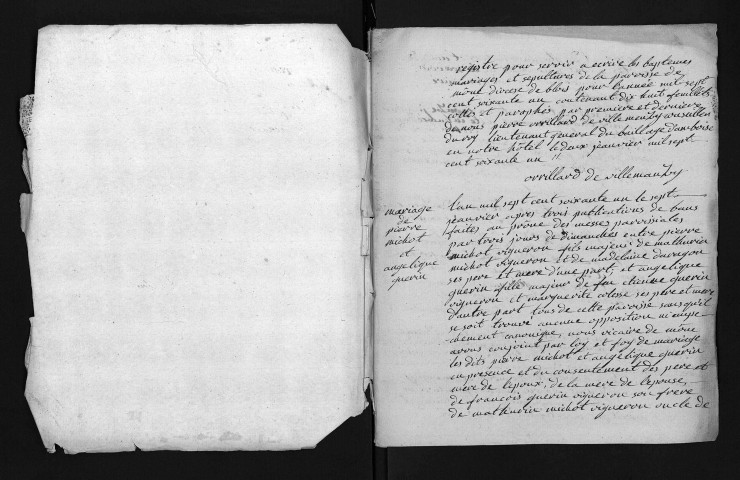 registre pour servir a ecrire les baptemes
mariages et sepultures de la paroisse de
mône diocese de blois pour l'année mil sept
cent soixante un contenant dix huit feuillets
cottés et paraphés par premiere et derniere
de nous pierre orvillard de villemanzy
du roy lieutenant general du bailliage d'amboise
en notre hôtel le deux jeanvier mil sept
cent soixante un //
orvillard de villemanzy
mariage
de
pierre
michot
et
angelique
guerin
l'an mil sept cent soixante un le sept
jeanvier apres trois publications de bans
faites au prône des messes paroissiales
par trois jours de dimanches entre pierre
michot vigneron fils majeur de mathurin
michot vigneron et de madelaine
ses pere et mere d'une part, et angelique
guerin fille majeur de feu etienne guerin
vigneron et marguerite colesse ses pere et mere
d'autre part tous de cette paroisse sans qu'il
se soit trouvé aucune opposition ni empe-
-chement canonique, nous vicaire de mône
avons conjoint par loy et foy de mariage
les dits pierre michot et angelique guerin
en presence et du consentement des pere et
mere de l'epoux, de la mere de l'epouse,
de francois guerin vigneron son frere
de mathurin michot vigneron oncle de